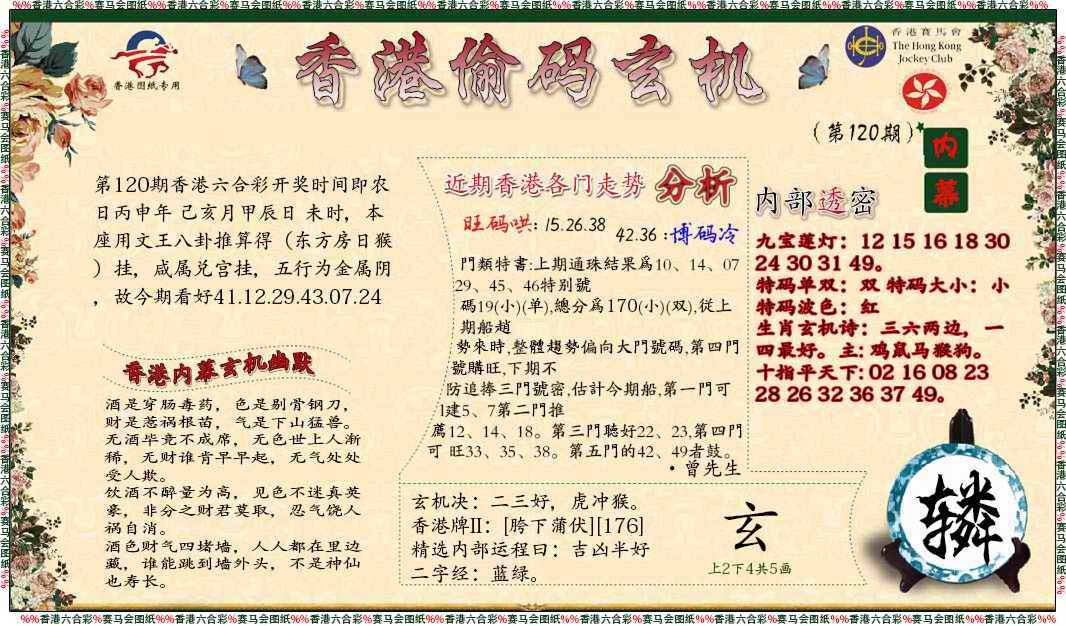 %%香港六合彩%赛马会图纸%%香港六合彩%赛马会图纸%%香港六合彩%赛马会图纸%%香港六合彩%赛马会图纸%%香港六合彩%赛马会图纸%%香港六合彩%赛马会图纸%%香港六合彩%%
香港图纸专用
香港偷码玄机
香港賽馬會
The Hong Kong
Jockey Club
（第120期）
内
幕
第120期香港六合彩开奖时间即农
日丙申年 己亥月甲辰日 未时，本
座用文王八卦推算得（东方房日猴
）挂，咸属兑宫挂，五行为金属阴
，故今期看好41.12.29.43.07.24
香港内幕玄机幽默
酒是穿肠毒药，色是剔骨钢刀，
财是惹祸根苗，气是下山猛兽。
无酒毕竟不成席，无色世上人渐
稀，无财谁肯早早起，无气处处
受人欺。
饮酒不醉量为高，见色不迷真英
豪，非分之财君莫取，忍气饶人
祸自消。
酒色财气四堵墙，人人都在里边
藏，谁能跳到墙外头，不是神仙
也寿长。
近期香港各门走势 分析
旺码哄：15.26.38
42.36：博码冷
門類特書:上期通珠結果爲10、14、07
29、45、46特别號
碼19(小)(单),總分爲170(小)(双),從上
期船趙
勢來時,整體趨勢偏向大門號碼,第四門
號購旺,下期不
防追捧三門號密,估計今期船,第一門可
1建5、7第二門推
薦12、14、18。第三門聽好22、23,第四門
可 旺33、35、38。第五門的42、49者鼓。
・曾先生
玄机决：二三好，虎冲猴。
香港牌II：[胯下蒲伏][176]
精选内部运程日：吉凶半好
二字经：蓝绿。
玄
上2下4共5画
内部透密
九宝莲灯：12 15 16 18 30
24 30 31 49。
特码单双：双 特码大小：小
特码波色：红
生肖玄机诗：三六两边，一
四最好。主: 鸡鼠马猴狗。
十指平天下: 02 16 08 23
28 26 32 36 37 49。
辚
%%香港六合彩%赛马会图纸%%香港六合彩%赛马会图纸%%香港六合彩%赛马会图纸%%香港六合彩%赛马会图纸%%香港六合彩%赛马会图纸%%香港六合彩%赛马会图纸%%香港六合彩%%